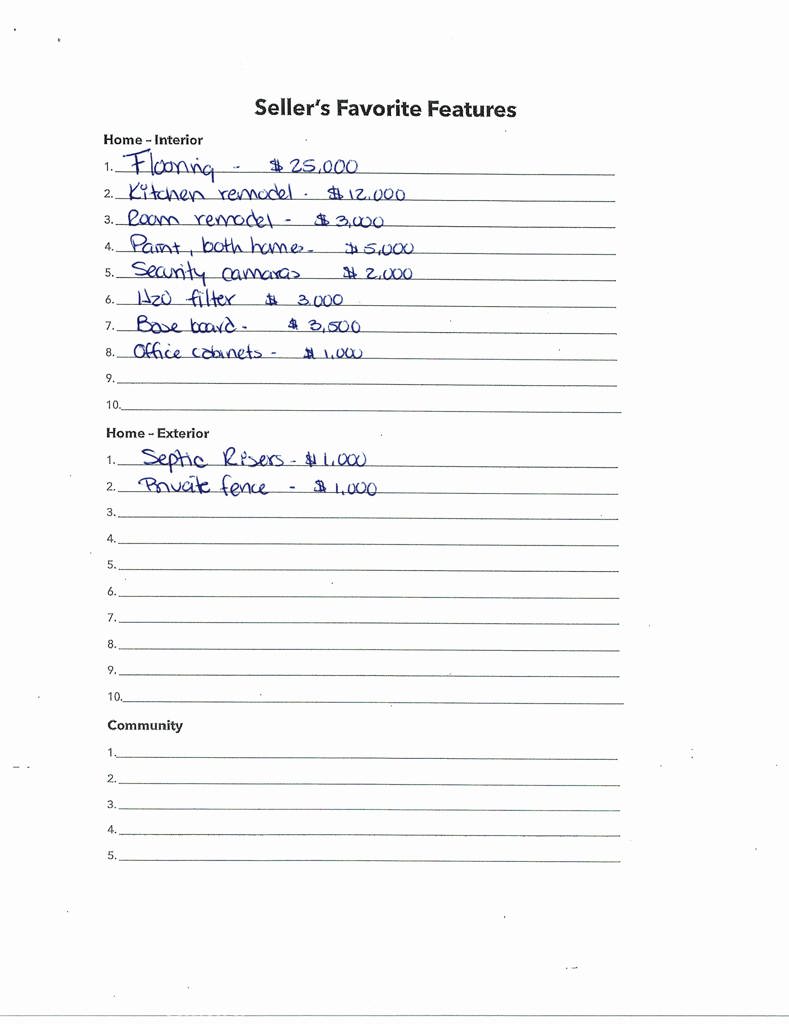 Seller's Favorite Features
Home – Interior
1. Flooring - $ 25,000
2. Kitchen remodel - $12,000
3. Room remodel - $ 3,000
4. Paint, both homes - $5,000
5. Security camaras $ 2,000
6. H20 filter $ 3,000
7. Base board - $ 3,500
8. Office cabinets - $ 1,000
9.
10.
Home – Exterior
1. Septic Risers - $ 1,000
2. Private fence - $ 1,000
3.
4.
5.
6.
7.
8.
9.
10.
Community
1.
2.
3.
4.
5.